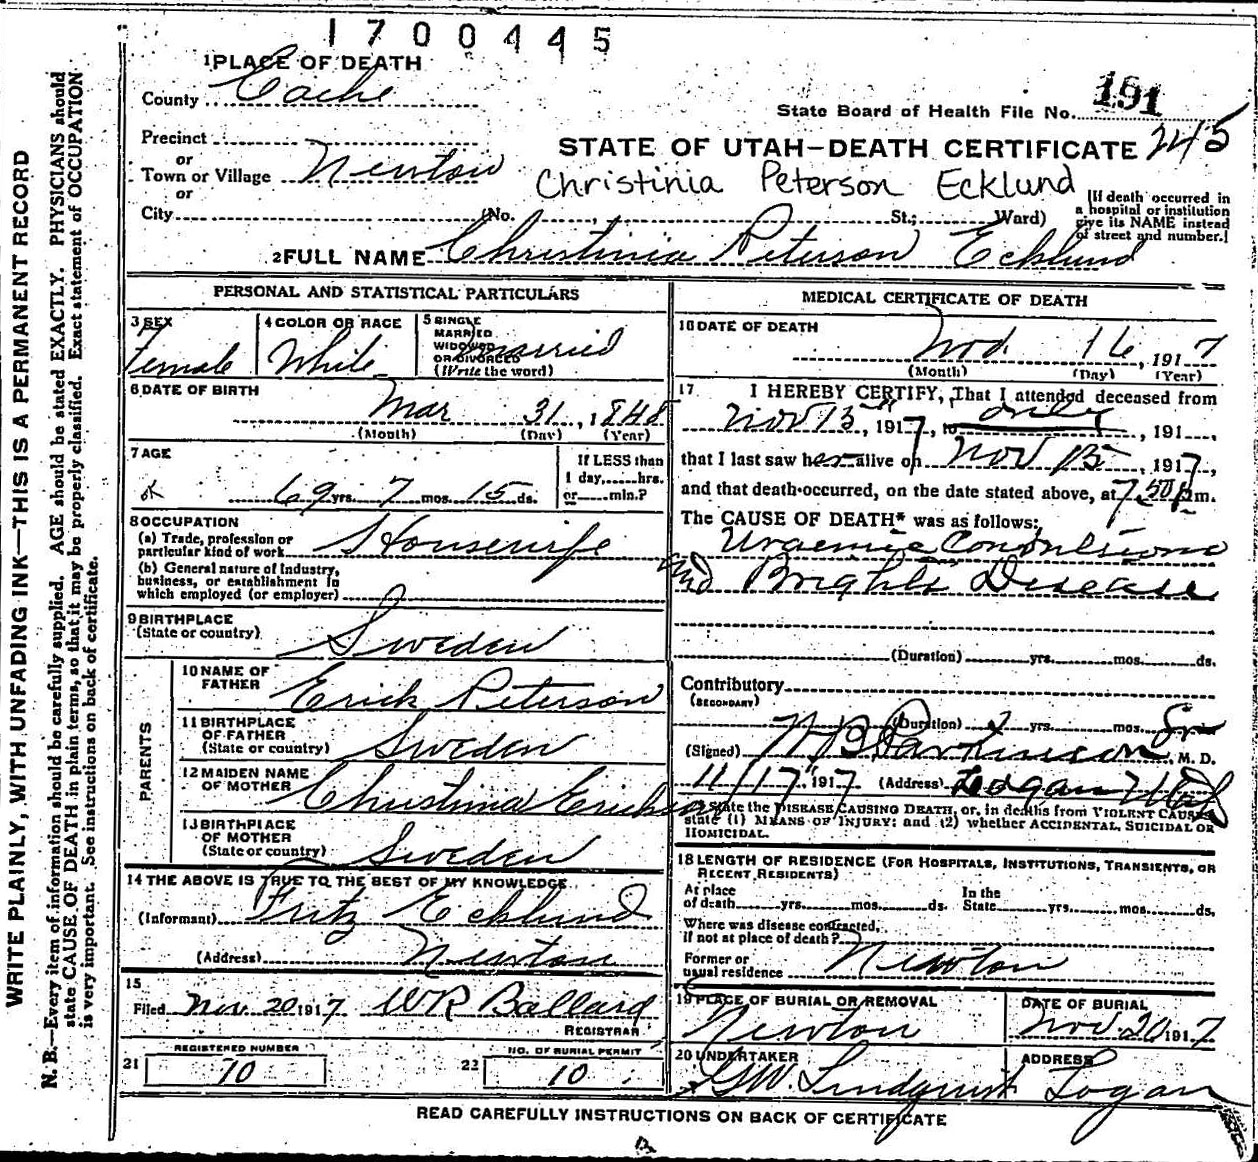 1700445
1 PLACE OF DEATH
County Cache
State Board of Health File No. 191
245
Precinct
or
Town or Village Newton
or
STATE OF UTAH—DEATH CERTIFICATE
Christinia Peterson Ecklund
City (No. , St.; Ward)
[If death occurred in
a hospital or institution
give its NAME instead
of street and number.]
2 FULL NAME Christinia Peterson Ecklund
PERSONAL AND STATISTICAL PARTICULARS
3 SEX
Female
4 COLOR OR RACE
White
5 SINGLE
MARRIED
WIDOWED
OR DIVORCED
(Write the word)
Married
6 DATE OF BIRTH
Mar 31, 1848
(Month) (Day) (Year)
7 AGE
69 yrs. 7 mos. 15 ds.
If LESS than
1 day,......hrs.
or......min.?
8 OCCUPATION
(a) Trade, profession or
particular kind of work Housewife
(b) General nature of Industry,
business, or establishment in
which employed (or employer)
9 BIRTHPLACE
(State or country) Sweden
PARENTS
10 NAME OF
FATHER Erick Peterson
11 BIRTHPLACE
OF FATHER
(State or country) Sweden
12 MAIDEN NAME
OF MOTHER Christina Erickson
13 BIRTHPLACE
OF MOTHER
(State or country) Sweden
14 THE ABOVE IS TRUE TO THE BEST OF MY KNOWLEDGE
(Informant) Fritz Ecklund
(Address) Newton
15
Filed Nov. 20 1917 WR Ballard
REGISTRAR
21 REGISTERED NUMBER
70
22 NO. OF BURIAL PERMIT
10
MEDICAL CERTIFICATE OF DEATH
16 DATE OF DEATH
Nov. 16, 1917
(Month) (Day) (Year)
17 I HEREBY CERTIFY, That I attended deceased from
Nov 15, 1917, to only, 191...,
that I last saw her alive on Nov 15, 1917,
and that death occurred, on the date stated above, at 7.50 p m.
The CAUSE OF DEATH* was as follows:
Uraemic Convulsions
and Brights Disease
(Duration) yrs. mos. ds.
Contributory
(SECONDARY)
(Duration) 2 yrs. mos. ds.
(Signed) W B Parkinson Sr, M. D.
11/17, 1917 (Address) Logan Utah
State the DISEASE CAUSING DEATH, or, in deaths from VIOLENT CAUSES
state (1) MEANS OF INJURY; and (2) whether ACCIDENTAL, SUICIDAL OR
HOMICIDAL.
18 LENGTH OF RESIDENCE (FOR HOSPITALS, INSTITUTIONS, TRANSIENTS, OR
RECENT RESIDENTS)
At place
of death yrs. mos. ds.
In the
State yrs. mos. ds.
Where was disease contracted,
if not at place of death?
Former or
usual residence Newton
19 PLACE OF BURIAL OR REMOVAL
Newton
DATE OF BURIAL
Nov. 20, 1917
20 UNDERTAKER
GW. Lindquist
ADDRESS
Logan
READ CAREFULLY INSTRUCTIONS ON BACK OF CERTIFICATE
WRITE PLAINLY, WITH UNFADING INK—THIS IS A PERMANENT RECORD
N. B.—Every item of information should be carefully supplied. AGE should be stated EXACTLY. PHYSICIANS should
state CAUSE OF DEATH in plain terms, so that it may be properly classified. Exact statement of OCCUPATION
is very important. See instructions on back of certificate.